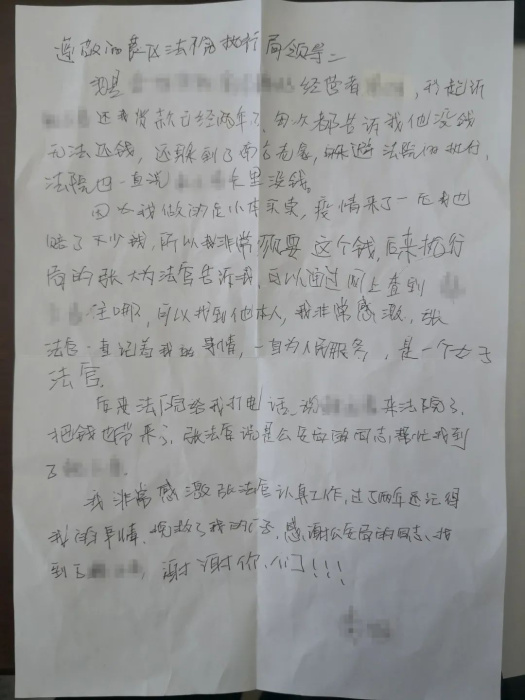 尊敬的 区法院执行局领导：
我是 经营者 ，我起诉
还我货款已经两年了，每次都告诉我他没钱
无法还钱，还躲到了 ，躲避法院的执行，
法院也一直说 卡里没钱。
因为我做的是小本买卖，疫情来了一 也
赔了不少钱，所以我非常需要这个钱，后来执行
局的张 法官告诉我，可以通过网上查到
住哪，可以找到他本人，我非常感激，张
法官一直记着我的事情，一直为人民服务，是一个 子
法官。
后来法院给我打电话说 来法院了，
把钱也带来了，张法官说是公安 的同志帮忙找到
了 。
我非常感激张法官认真工作，过了两年还记得
我的事情，挽救了我的 ，感谢公安局的同志，找
到了 ，谢谢你们！！！